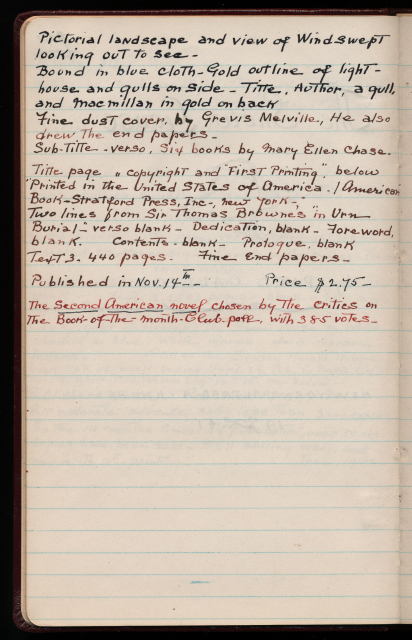 Pictorial landscape and view of Windswept
looking out to see-
Bound in blue cloth-Gold outline of light-
house and gulls on side - Title, Author, a gull,
and macmillan in gold on back
Fine dust cover, by Grevis Melville, He also
drew The end papers-
Sub-Title - verso. Six books by Mary Ellen Chase.
Title page "Copyright and "First Printing", below
"Printed in the United States of America. / American
Book-Stratford Press, Inc-, new York-;"
Two lines from Sir Thomas Browne's "in Urn
Burial"-verso blank- Dedication, blank- Foreword,
blank. Contents - blank- Prologue, blank
Text 3- 440 pages. Fine End papers-
Published in Nov. 14th - - Price $2.75-
The Second American novel chosen by The critics on
The Book-of-The-month-Club-poll, with 385 votes-